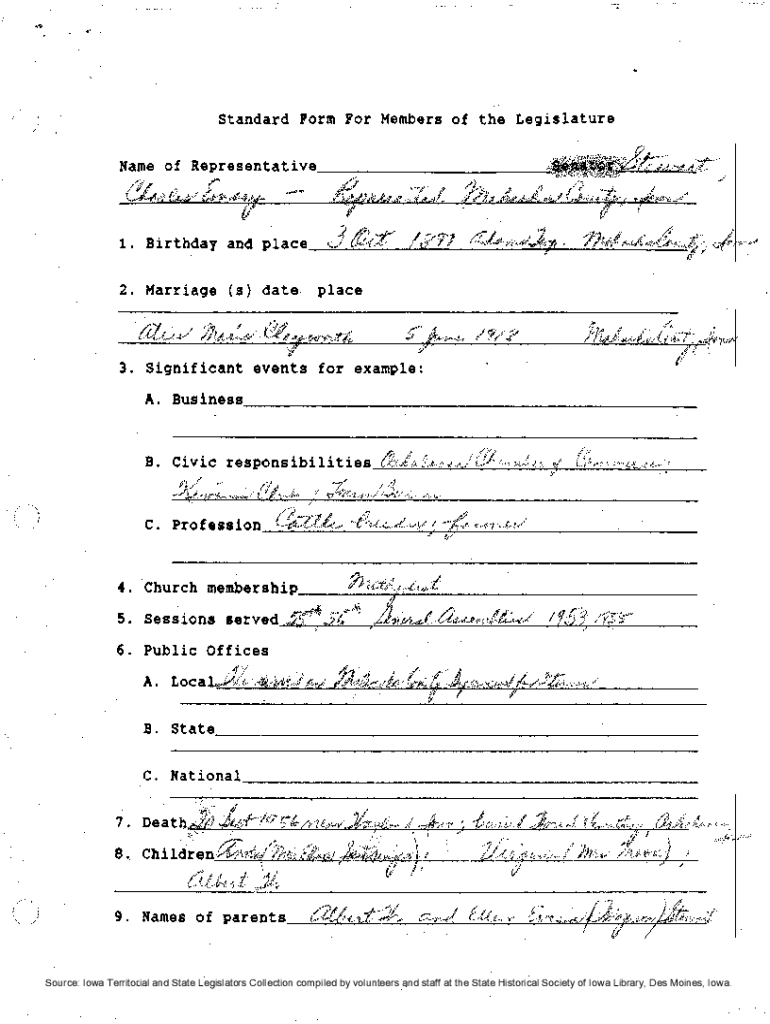 Standard Form For Members of the Legislature
Name of Representative Senator Stewart,
Charles Emory — Represented Mahaska County, Iowa
1. Birthday and place 3 Oct Mahaska County, Iowa
2. Marriage (s) date place
Marie 5 June Mahaska County, Iowa
3. Significant events for example:
A. Business
B. Civic responsibilities Oskaloosa Chamber of Commerce;
Kiwanis Club; Farm Bureau
C. Profession Cattle Breeder; farmer
4. Church membership Methodist
5. Sessions served 55th, 56th General Assemblies 1953, 1955
6. Public Offices
A. Local He served on Mahaska County
B. State
C. National
7. Death Sept 1956 near Iowa; buried Forest Cemetery, Oskaloosa
8. Children (Mrs ); Virginia (Mrs );
Albert H.
9. Names of parents Albert H. and Ellen Stewart
Source: Iowa Territorial and State Legislators Collection compiled by volunteers and staff at the State Historical Society of Iowa Library, Des Moines, Iowa.